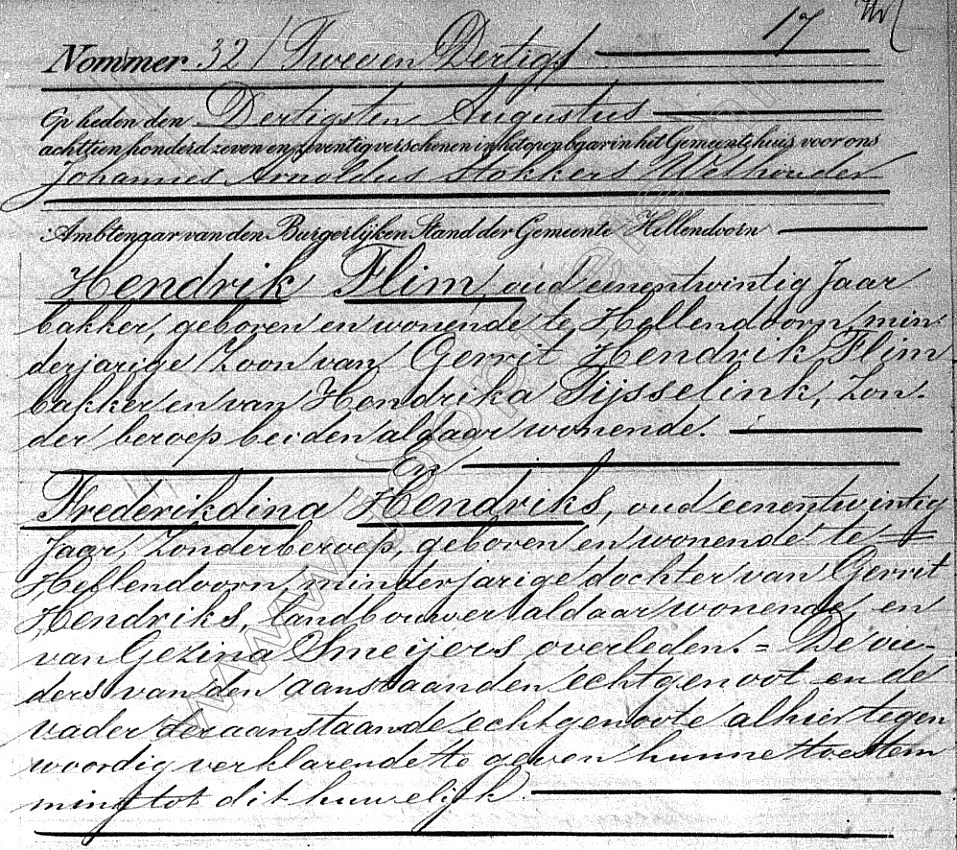 17
Nommer 32 / Tweeen Dertigs
Op heden den Dertigsten Augustus
achttien honderd zeven en zeventig verschenen in het openbaar in het Gemeentehuis voor ons
Johannes Arnoldus Stokkers Wethouder
Ambtenaar van den Burgerlijken Stand der Gemeente Hellendoorn
Hendrik Flim, oud eenentwintig Jaar
bakker, geboren en wonende te Hellendoorn, min-
derjarige Zoon van Gerrit Hendrik Flim
bakker en van Hendrika Tijsselink, Zon-
der beroep beiden aldaar wonende.
En
Frederikdina Hendriks, oud eenentwintig
Jaar, Zonder beroep, geboren en wonende te
Hellendoorn, minderjarige dochter van Gerrit
Hendriks, landbouwer aldaar wonende, en
van Gezina Smeijers overleden. = De ou-
ders van den aanstaanden echtgenoot en de
vader der aanstaande echtgenoote alhier tegen
woordig verklarende te geven hunne toestem
ming tot dit huwelijk.